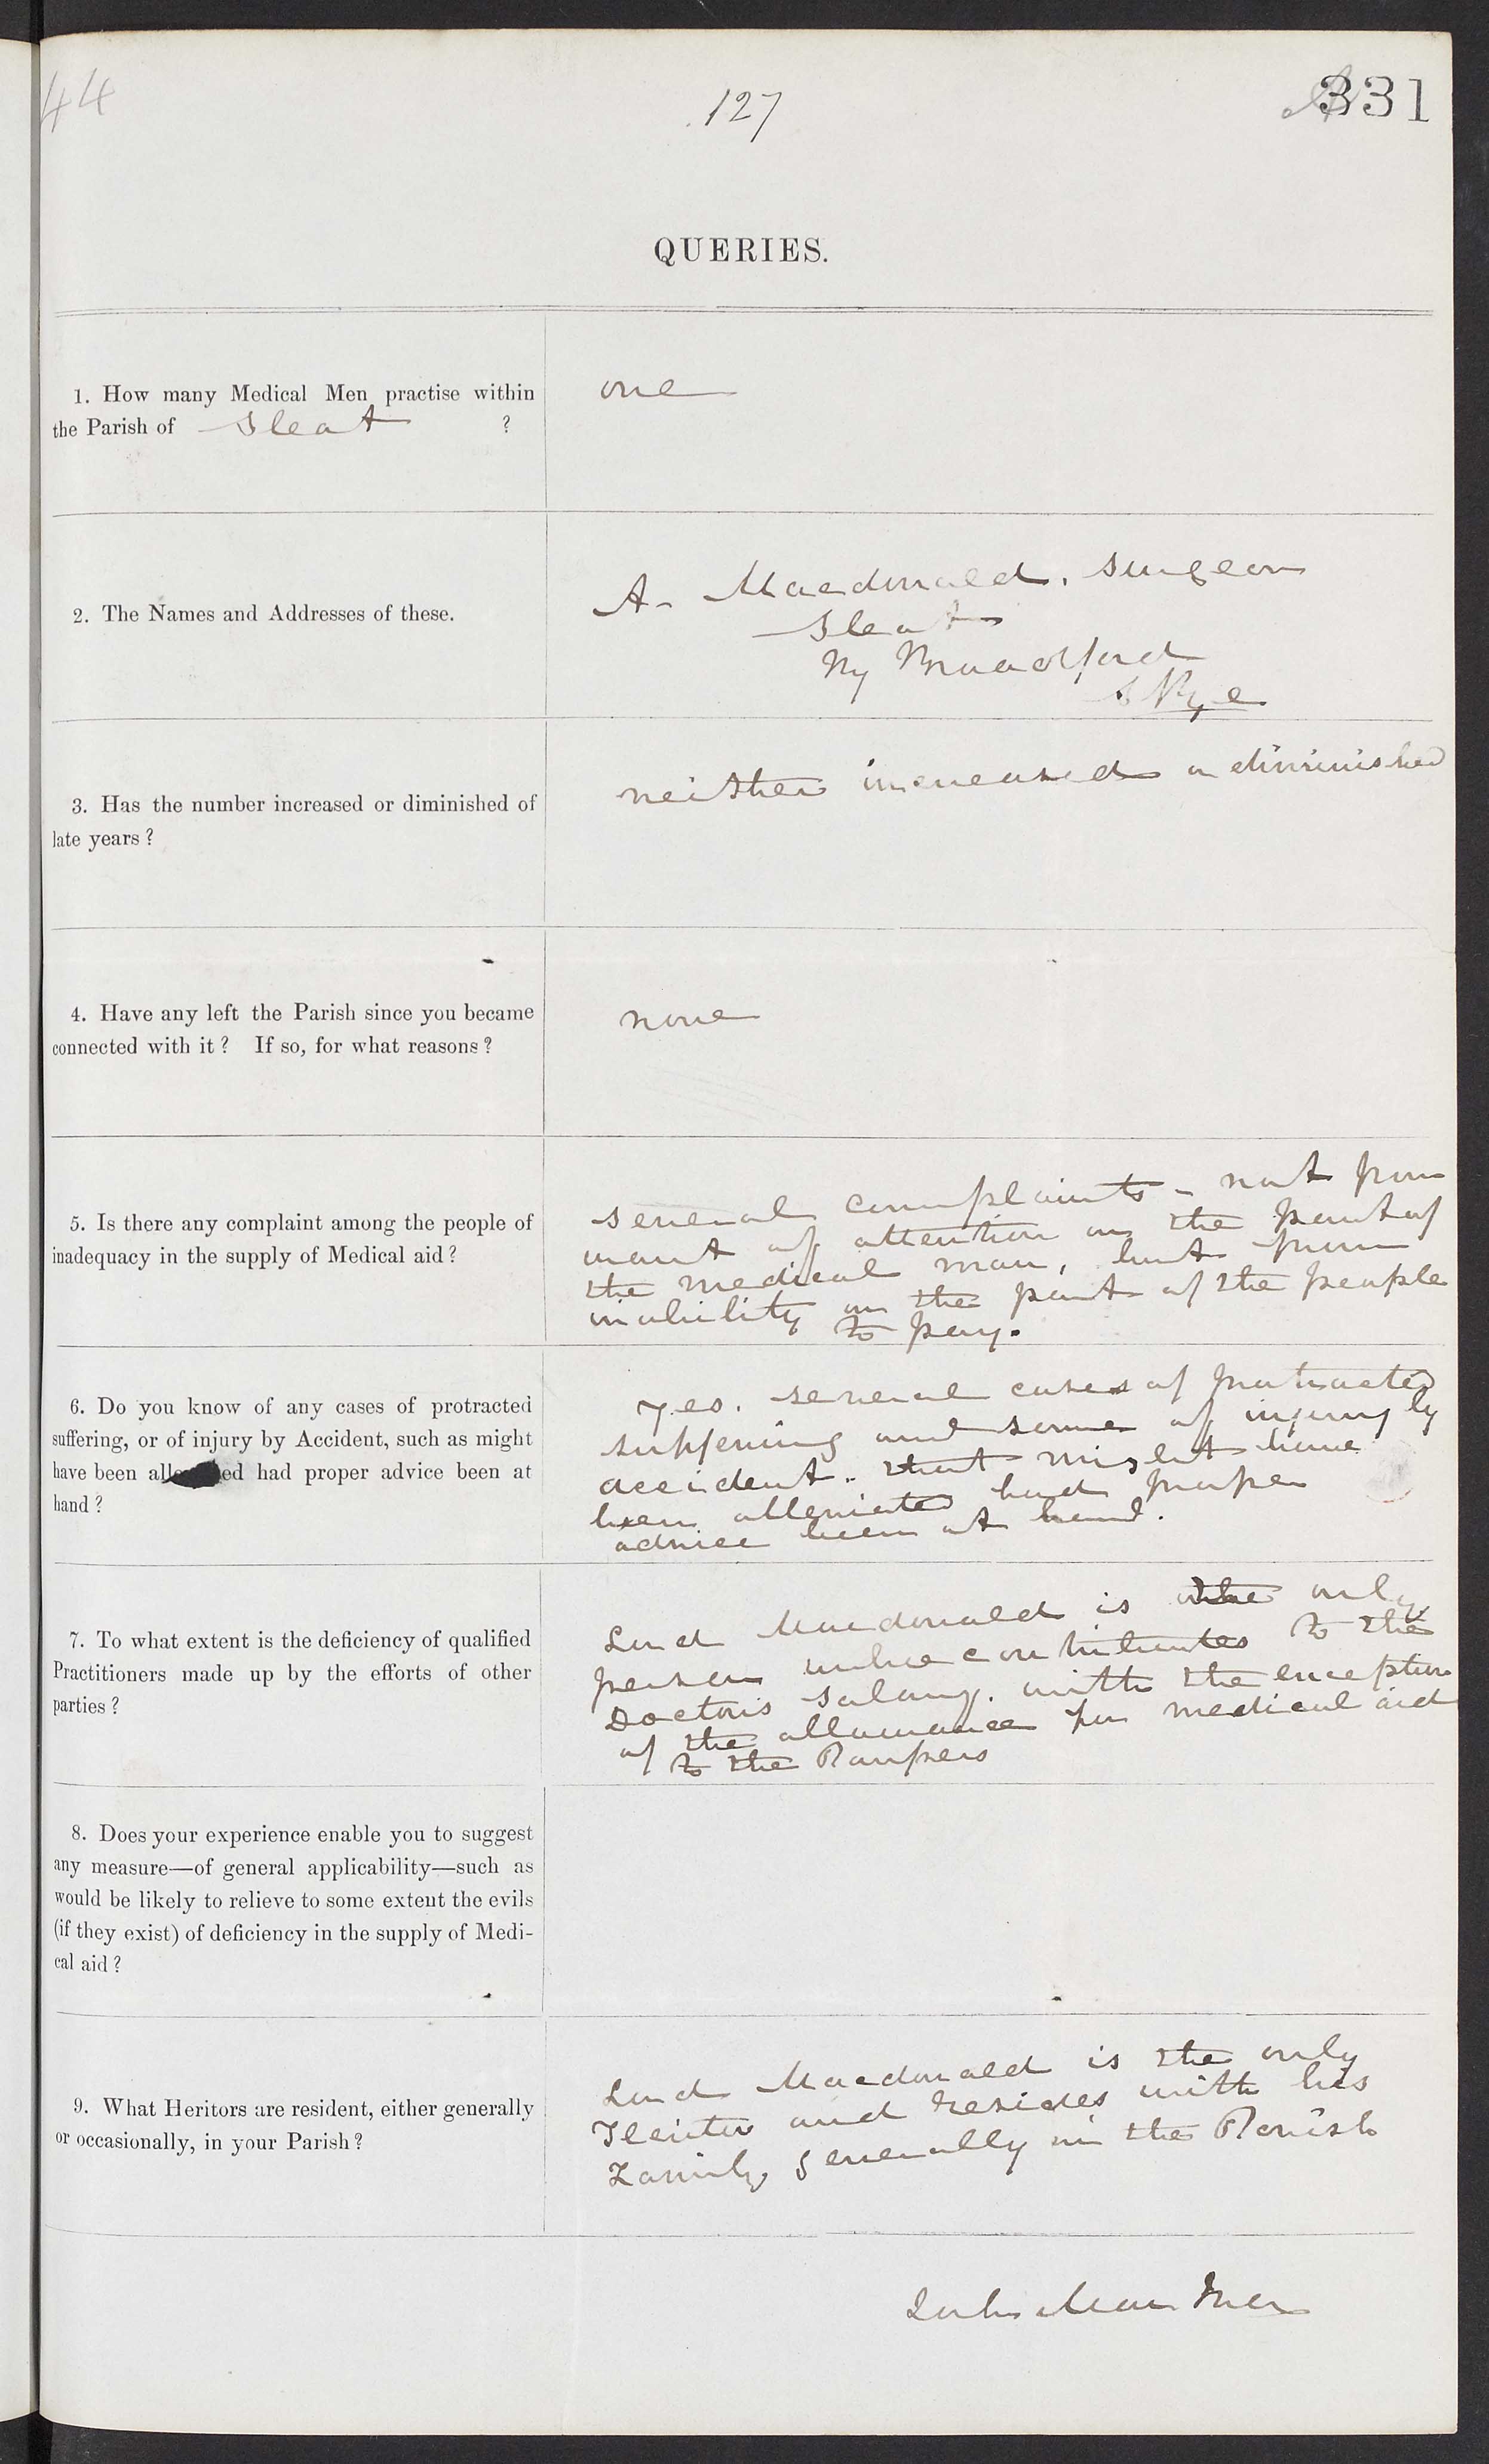 44
127
331
QUERIES.
1. How many Medical Men practise within
the Parish of Sleat ?
one
2. The Names and Addresses of these.
A. Macdonald, Surgeon
Sleat
By Broadford
Skye
3. Has the number increased or diminished of
late years?
neither increased or diminished
4. Have any left the Parish since you became
connected with it? If so, for what reasons?
none
5. Is there any complaint among the people of
inadequacy in the supply of Medical aid?
several complaints - not from
want of attention on the part of
the medical man, but from
inability on the part of the people
to pay.
6. Do you know of any cases of protracted
suffering, or of injury by Accident, such as might
have been all ed had proper advice been at
hand?
yes. several cases of protracted
suffering and some of injury by
accident. that might have
been alleviated had proper
advice been at hand.
7. To what extent is the deficiency of qualified
Practitioners made up by the efforts of other
parties?
Lord Macdonald is the only
person who contributes to the
Doctors salary. with the exception
of the allowance for medical aid
to the Paupers
8. Does your experience enable you to suggest
any measure—of general applicability—such as
would be likely to relieve to some extent the evils
(if they exist) of deficiency in the supply of Medi-
cal aid?
9. What Heritors are resident, either generally
or occasionally, in your Parish?
Lord Macdonald is the only
Heritor and resides with his
Family generally in the Parish